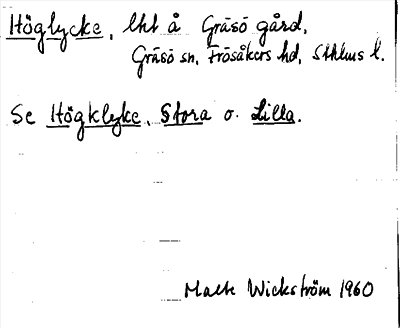 Höglycke, lht å Gräsö gård,
Gräsö sn, Frösåkers hd, Sthlms l.
Se Högklyke, Stora o. Lilla.
Malte Wickström 1960